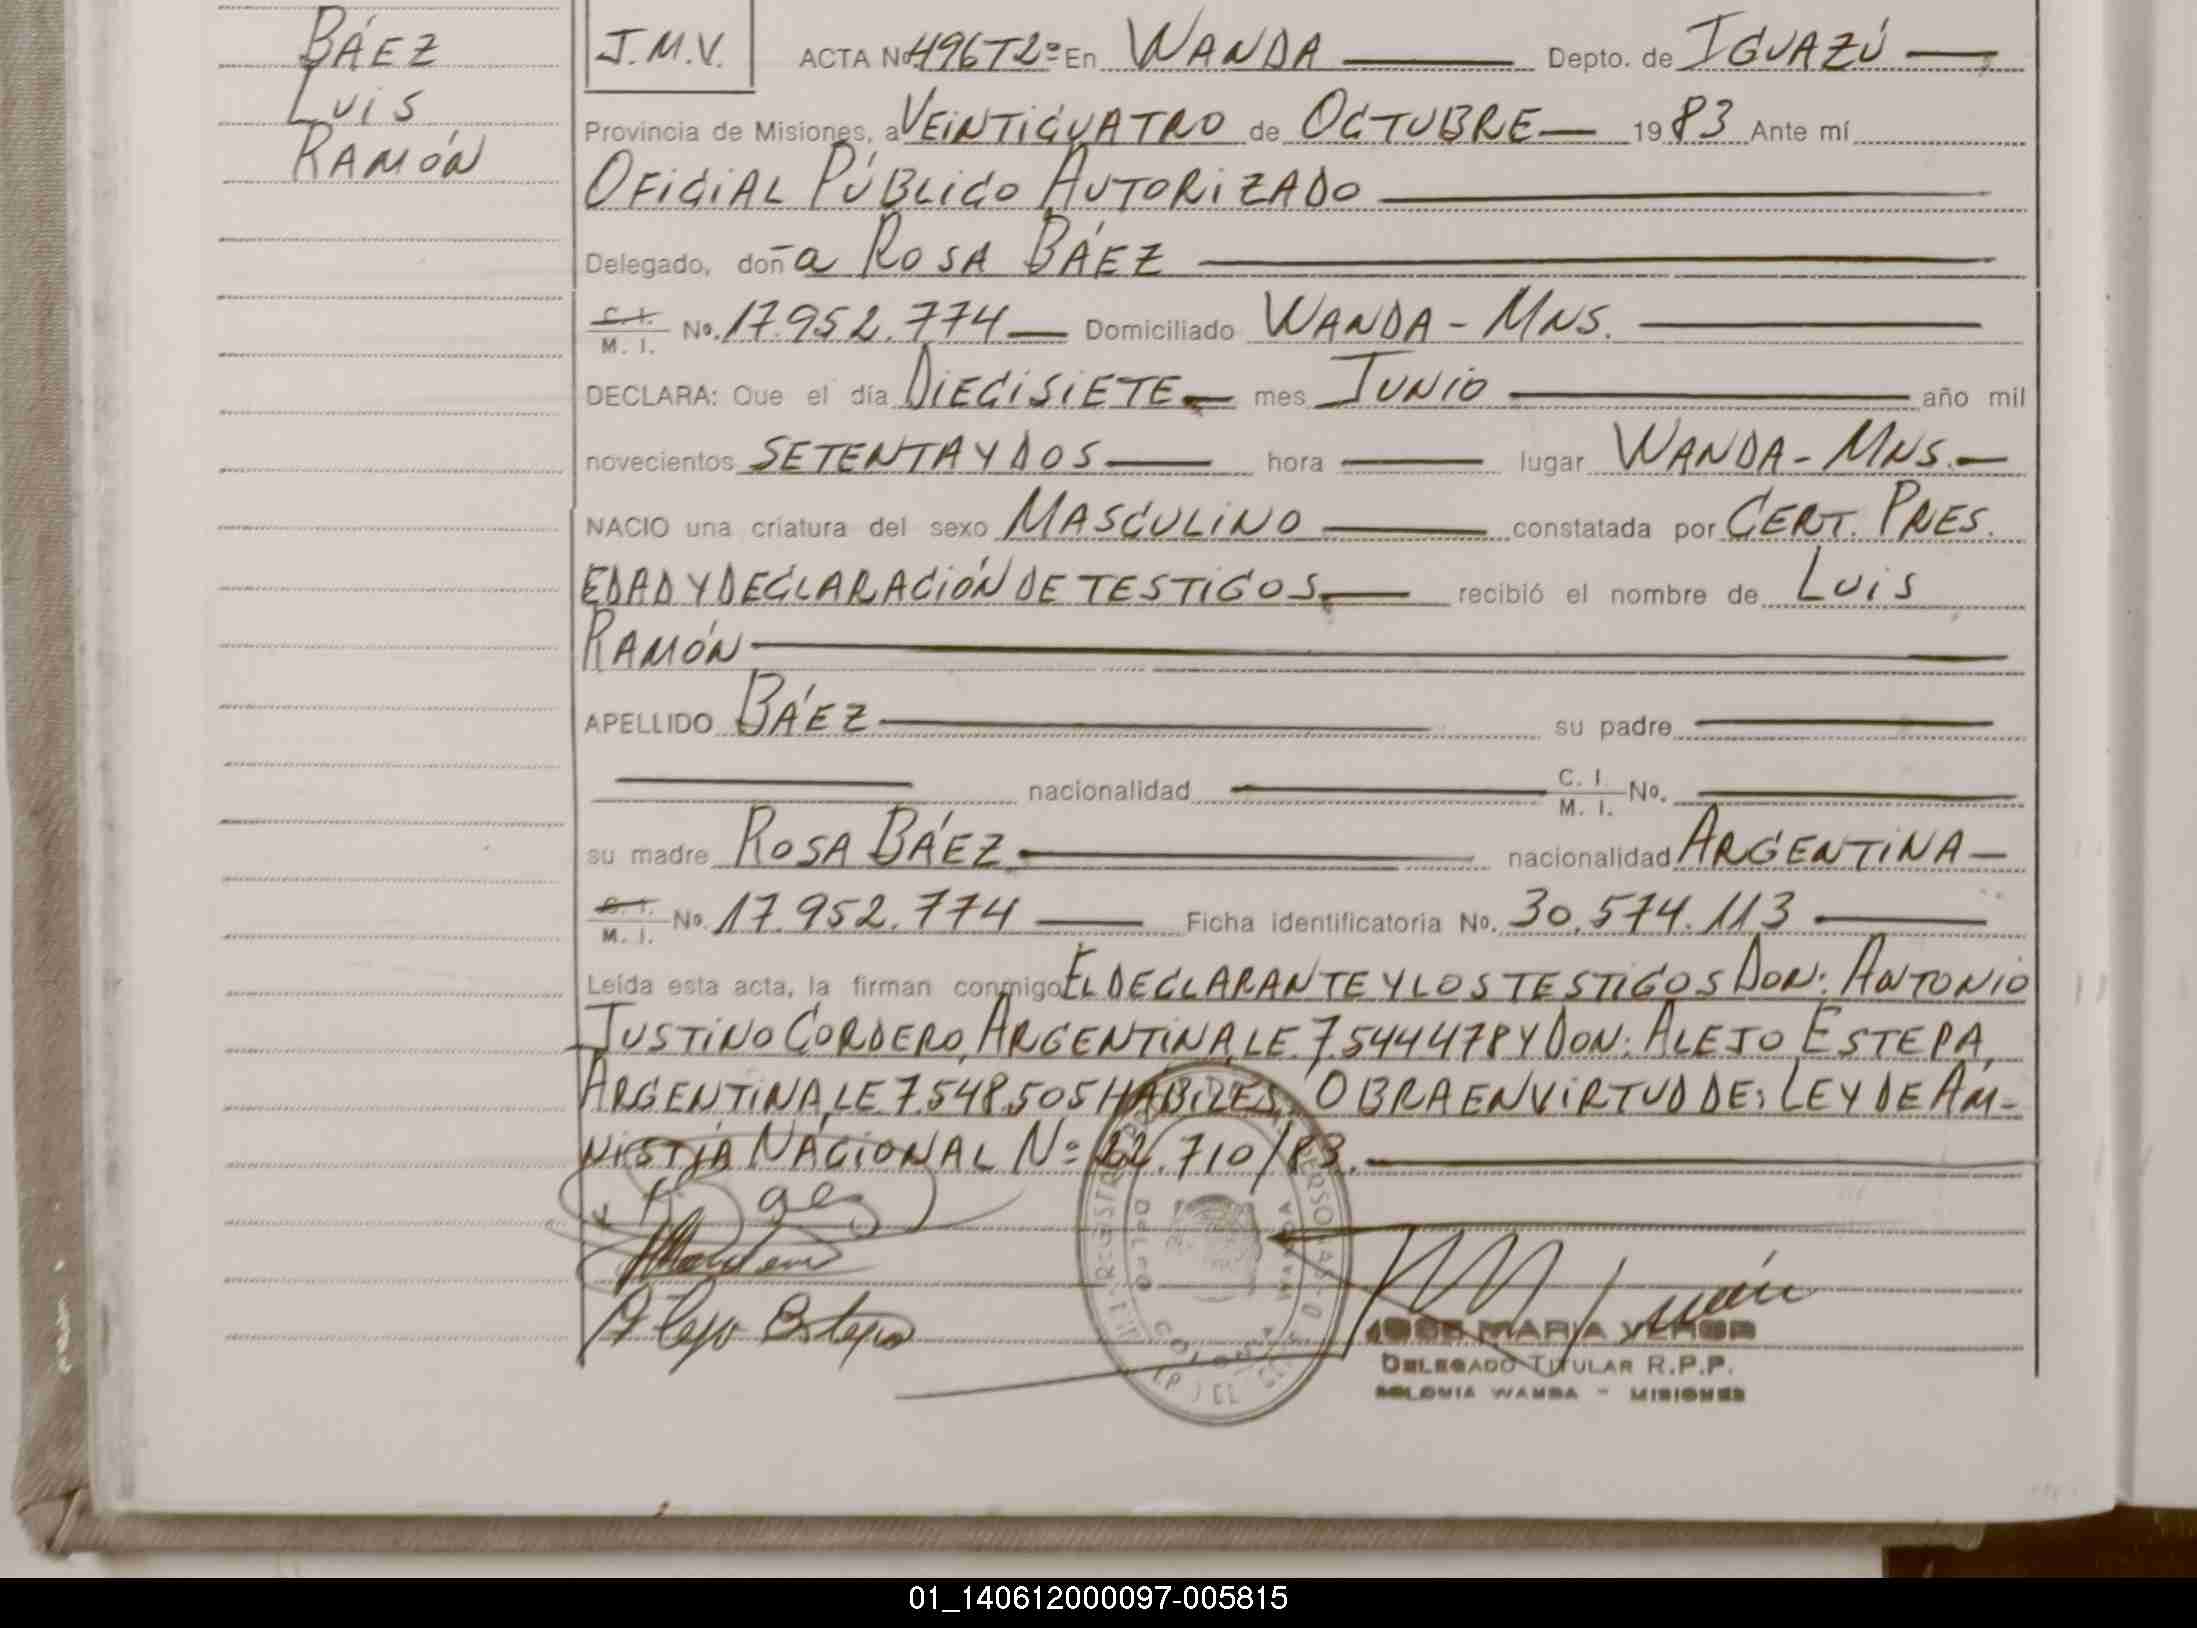 BÁEZ
LUIS
RAMÓN
J.M.V.
ACTA Nº 496T2º En WANDA Depto. de IGUAZÚ
Provincia de Misiones, a VEINTICUATRO de OCTUBRE 1983 Ante mí
OFICIAL PÚBLICO AUTORIZADO
Delegado, doña ROSA BÁEZ
C. I. / M. I. Nº. 17.952.774 Domiciliado WANDA - MNS.
DECLARA: Que el día DIECISIETE mes JUNIO año mil
novecientos SETENTA Y DOS hora lugar WANDA - MNS.
NACIO una criatura del sexo MASCULINO constatada por CERT. PRES.
EDAD Y DECLARACIÓN DE TESTIGOS recibió el nombre de LUIS
RAMÓN
APELLIDO BÁEZ su padre
nacionalidad C. I. / M. I. Nº.
su madre ROSA BÁEZ nacionalidad ARGENTINA
C. I. / M. I. Nº. 17.952.774 Ficha identificatoria Nº. 30.574.113
Leída esta acta, la firman conmigo EL DECLARANTE Y LOS TESTIGOS DON: ANTONIO
JUSTINO CORDERO, ARGENTINA, LE 7.544478 Y DON: ALEJO ESTEPA,
ARGENTINA, LE 7.548.505 HABILES. OBRA EN VIRTUD DE: LEY DE AM-
NISTIA NACIONAL Nº 22.710/83.
Baez
Alejo Estepa
JOSE MARIA
DELEGADO TITULAR R.P.P.
COLONIA WANDA - MISIONES
01_140612000097-005815